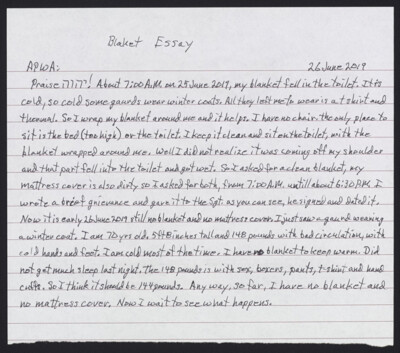 Blaket Essay
APWA: 26 June 2019
Praise יהוה! About 7:00 A.M. on 25 June 2019, my blanket fell in the toilet. It is
cold, so cold some gaurds wear winter coats. All they left me to wear is a t shirt and
thermal. So I wrap my blanket around me and it helps. I have no chair. the only place to
sit is the bed (too high) or the toilet. I keep it clean and sit on the toilet, with the
blanket wrapped around me. Well I did not realize it was coming off my shoulder
and that part fell into the toilet and got wet. So I asked for a clean blanket, my
mattress cover is also dirty so I asked for both, from 7:00 A.M. untill about 6:30 P.M. I
wrote a grievance and gave it to the Sgt. as you can see, he signed and dated it.
Now it is early 26 June 2019 still no blanket and no mattress cover. I just saw a guard wearing
a winter coat. I am 70 yrs old. 5 ft 8 inches tall and 148 pounds with bad circulation, with
cold hands and feet. I am cold most of the time. I have no blanket to keep warm. Did
not get much sleep last night. The 148 pounds is with sox, boxers, pants, t-shirt and hand
cuffs. So I think it should be 144 pounds. Any way, so far, I have no blanket and
no mattress cover. Now I wait to see what happens.